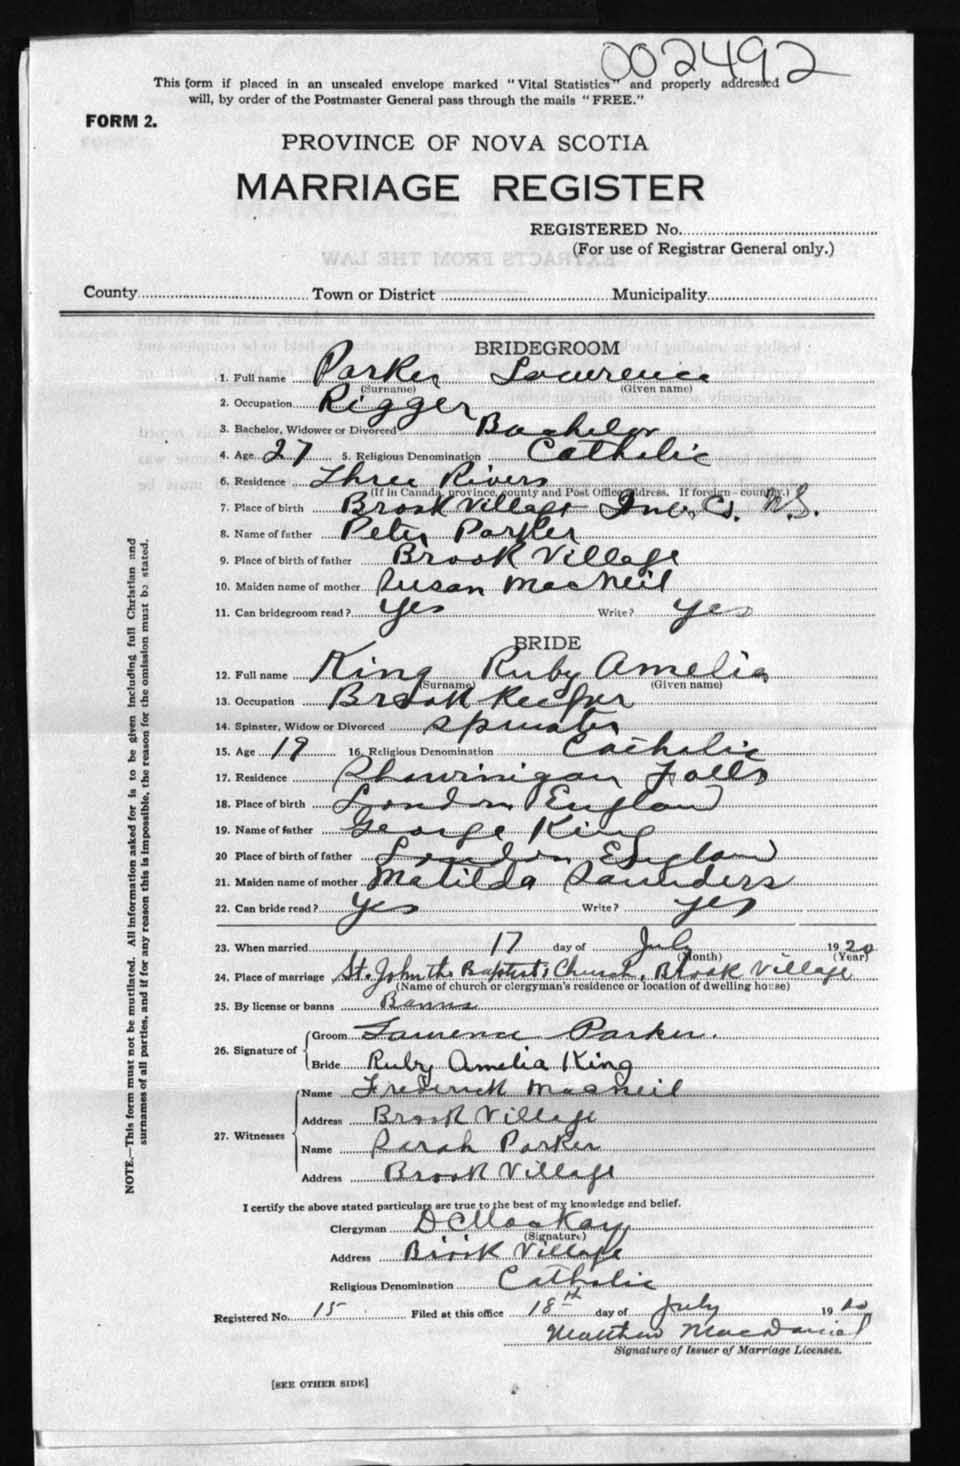 002492
This form if placed in an unsealed envelope marked "Vital Statistics" and properly addressed
will, by order of the Postmaster General pass through the mails "FREE."
FORM 2.
PROVINCE OF NOVA SCOTIA
MARRIAGE REGISTER
REGISTERED No.
(For use of Registrar General only.)
County Town or District Municipality
BRIDEGROOM
1. Full name Parker Lawrence
(Surname) (Given name)
2. Occupation Rigger
3. Bachelor, Widower or Divorced Bachelor
4. Age 27 5. Religious Denomination Catholic
6. Residence Three Rivers
(If in Canada, province, county and Post Office address. If foreign—country.)
7. Place of birth Brook Village Inv. Co. N.S.
8. Name of father Peter Parker
9. Place of birth of father Brook Village
10. Maiden name of mother Susan MacNeil
11. Can bridegroom read? Yes Write? Yes
BRIDE
12. Full name King Ruby Amelia
(Surname) (Given name)
13. Occupation Book Keeper
14. Spinster, Widow or Divorced Spinster
15. Age 19 16. Religious Denomination Catholic
17. Residence Shawinigan Falls
18. Place of birth London England
19. Name of father George King
20 Place of birth of father London England
21. Maiden name of mother Matilda Saunders
22. Can bride read? Yes Write? Yes
23. When married 17 day of July 1920
(Month) (Year)
24. Place of marriage St. John the Baptist's Church, Brook Village
(Name of church or clergyman's residence or location of dwelling house)
25. By license or banns Banns
26. Signature of Groom Lawrence Parker.
Bride Ruby Amelia King
27. Witnesses Name Frederick MacNeil
Address Brook Village
Name Sarah Parker
Address Brook Village
I certify the above stated particulars are true to the best of my knowledge and belief.
Clergyman D C MacKay
(Signature)
Address Brook Village
Religious Denomination Catholic
Registered No. 15 Filed at this office 18th day of July 1920
Matthew MacDaniel
Signature of Issuer of Marriage Licenses.
[SEE OTHER SIDE]
NOTE.—This form must not be mutilated. All information asked for is to be given including full Christian and
surnames of all parties, and if for any reason this is impossible, the reason for the omission must be stated.